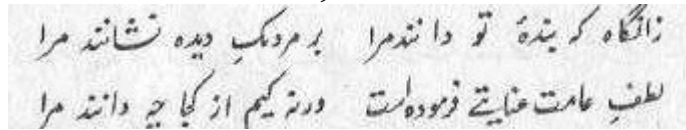 زانگاه که بندهٔ تو دانند مرا بر مردمک دیده نشانند مرا
لطف عامت عنایتے فرموده است ورنه کیم از کجا چه دانند مرا